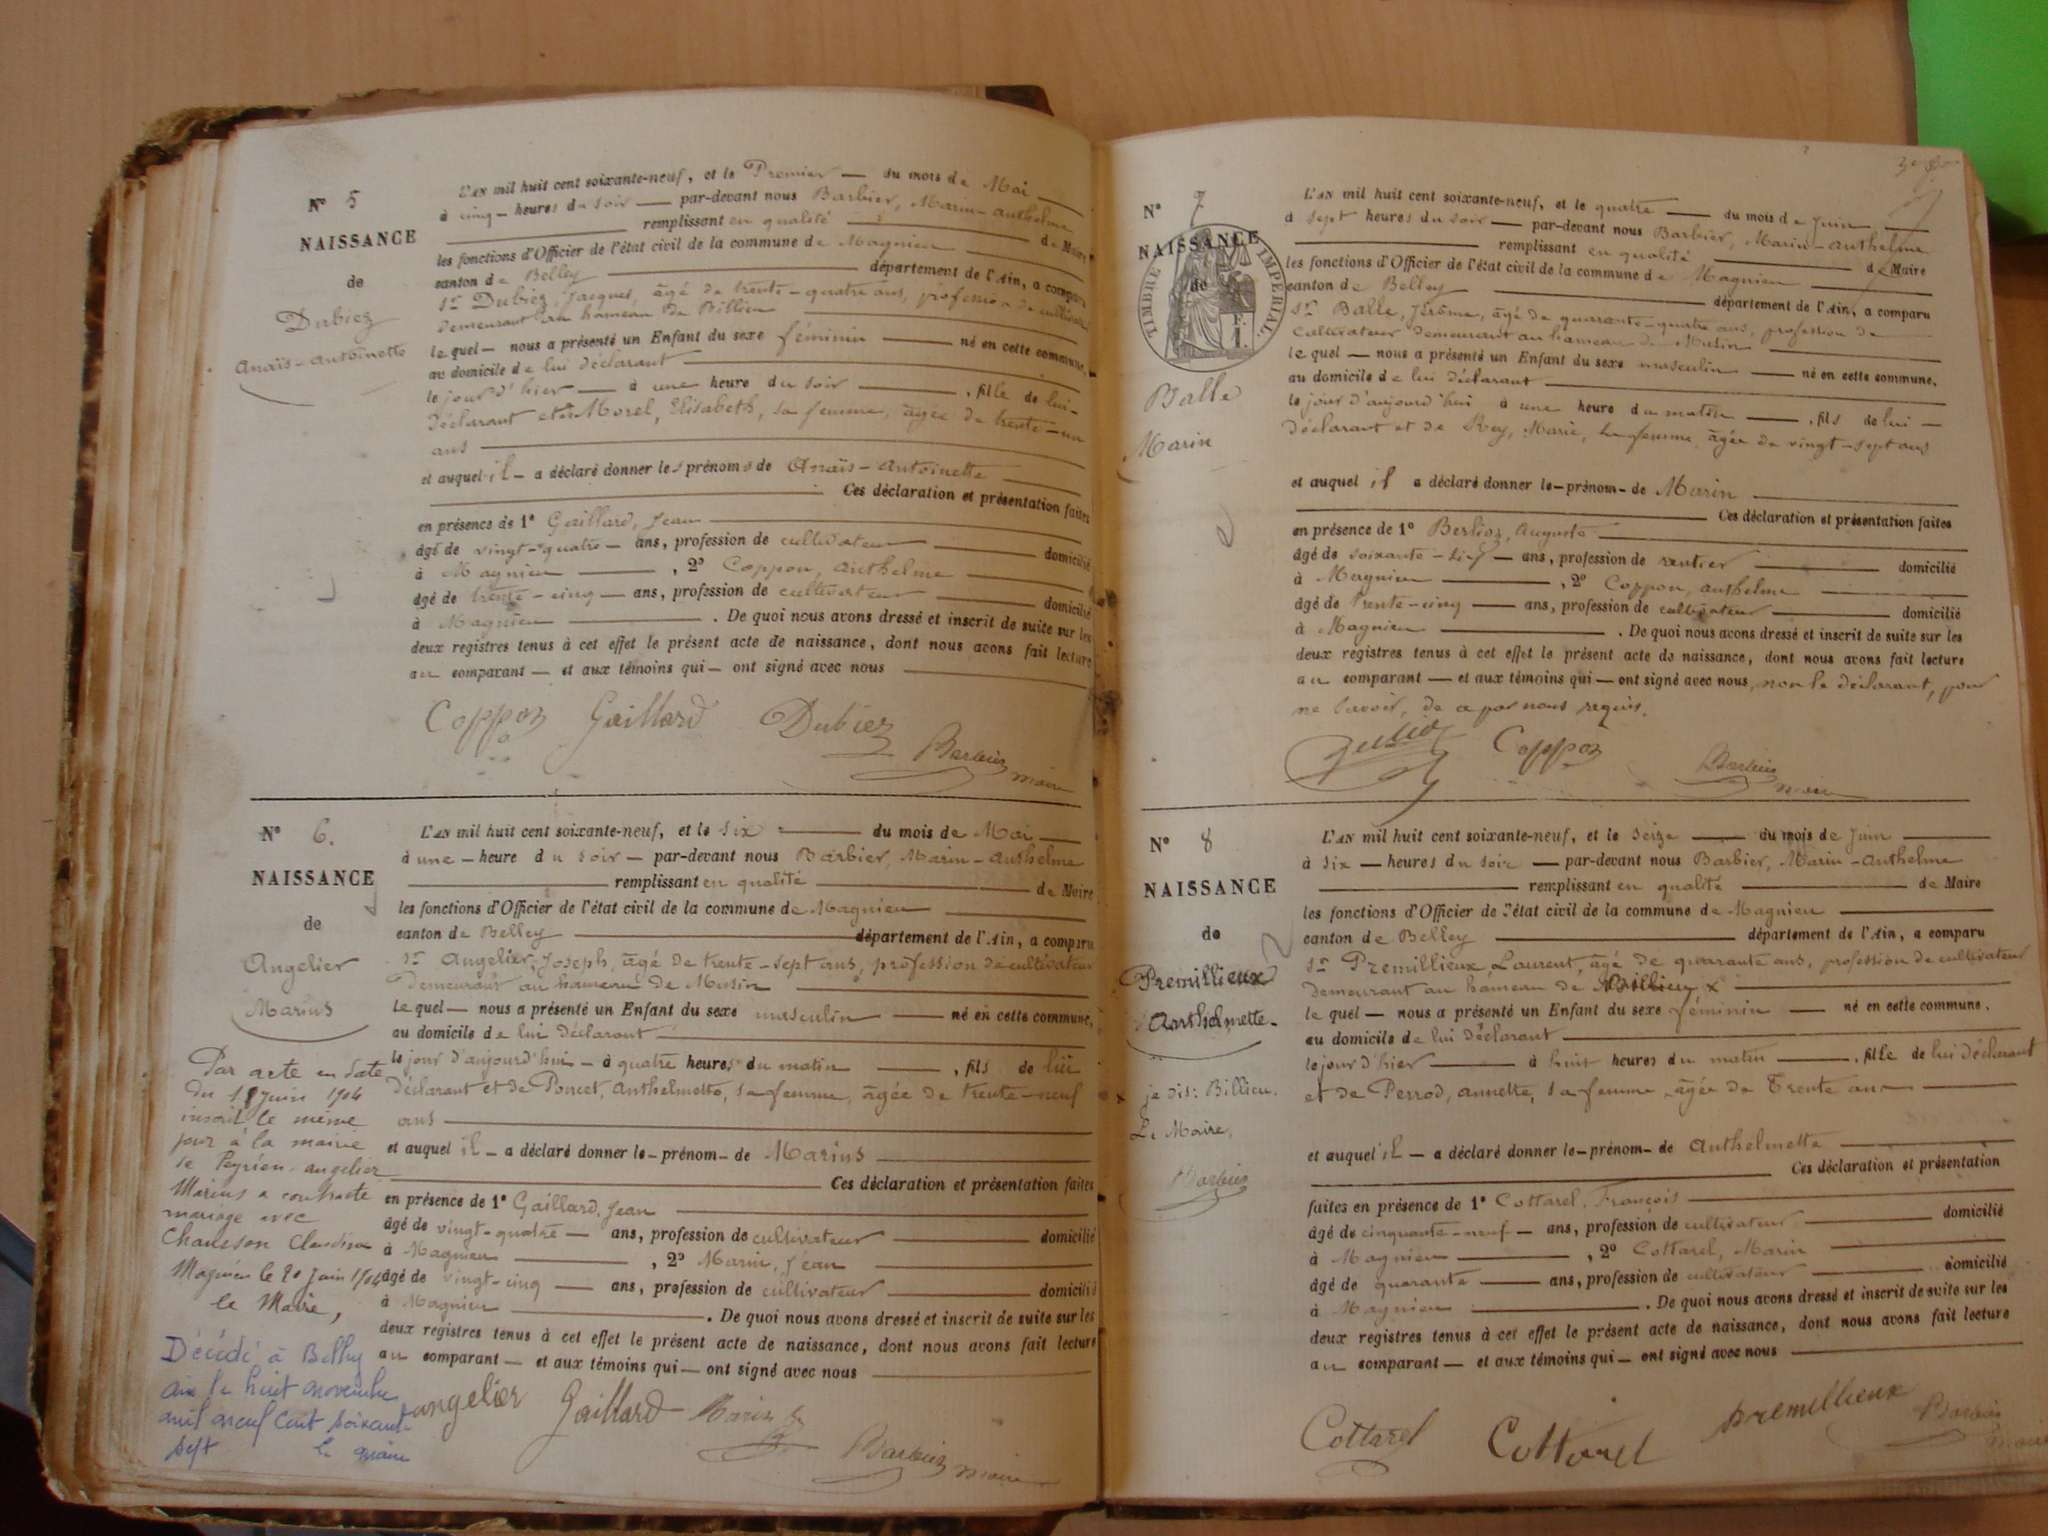 N° 5
NAISSANCE
de
Dubiez
Anaïs-Antoinette
L'AN mil huit cent soixante-neuf, et le Premier — du mois de Mai
à cinq — heures du soir — par-devant nous Barbier, Marin-Anthelme
remplissant en qualité de Maire
les fonctions d'Officier de l'état civil de la commune de Magnieu
canton de Belley département de l'Ain, a comparu
Sr Dubiez, Jacques, âgé de trente-quatre ans, profession de cultivateur
demeurant au hameau de Billieu
le quel — nous a présenté un Enfant du sexe féminin né en cette commune,
au domicile de lui déclarant
le jour d'hier — à une heure du soir , fille de lui-
déclarant et de Morel, Elisabeth, sa femme, âgée de trente-un
ans
et auquel il — a déclaré donner les prénoms de Anaïs-Antoinette
Ces déclaration et présentation faites
en présence de 1° Gaillard, Jean
âgé de vingt-quatre — ans, profession de cultivateur domicilié
à Magnieu , 2° Coppon, Anthelme
âgé de trente-cinq — ans, profession de cultivateur domicilié
à Magnieu . De quoi nous avons dressé et inscrit de suite sur les
deux registres tenus à cet effet le présent acte de naissance, dont nous avons fait lecture
au comparant — et aux témoins qui — ont signé avec nous
Coppon Gaillard Dubiez Barbier maire
N° 6.
NAISSANCE
de
Angelier
Marius
L'AN mil huit cent soixante-neuf, et le six du mois de Mai
à une — heure du soir — par-devant nous Barbier, Marin-Anthelme
remplissant en qualité de Maire
les fonctions d'Officier de l'état civil de la commune de Magnieu
canton de Belley département de l'Ain, a comparu
Sr Angelier, Joseph, âgé de trente-sept ans, profession de cultivateur
demeurant au hameau de Musin
le quel — nous a présenté un Enfant du sexe masculin né en cette commune,
au domicile de lui déclarant
le jour d'aujourd'hui — à quatre heures du matin , fils de lui
déclarant et de Poncet, Anthelmette, sa femme, âgée de trente-neuf
ans
et auquel il — a déclaré donner le — prénom — de Marius
Ces déclaration et présentation faites
en présence de 1° Gaillard, Jean
âgé de vingt-quatre — ans, profession de cultivateur domicilié
à Magnieu , 2° Marin, Jean
âgé de vingt-cinq ans, profession de cultivateur domicilié
à Magnieu . De quoi nous avons dressé et inscrit de suite sur les
deux registres tenus à cet effet le présent acte de naissance, dont nous avons fait lecture
au comparant — et aux témoins qui — ont signé avec nous
angelier Gaillard Marin Barbier maire
Par acte en date
du Juin 1904
inscrit le même
jour à la mairie
de Peyrieu Angelier
Marius a contracté
mariage avec
Chausson Claudine
Magnieu le 20 Juin 1904
le Maire,
Décédé à Belley
Ain le huit novembre
mil neuf cent soixante
sept le maire
N° 7
NAISSANCE
de
TIMBRE IMPERIAL
Balle
Marin
L'AN mil huit cent soixante-neuf, et le quatre du mois de Juin
à sept heures du soir — par-devant nous Barbier, Marin-Anthelme
remplissant en qualité de Maire
les fonctions d'Officier de l'état civil de la commune de Magnieu
canton de Belley département de l'Ain, a comparu
Sr Balle, Jérôme, âgé de quarante-quatre ans, profession de
cultivateur demeurant au hameau de Musin
le quel — nous a présenté un Enfant du sexe masculin né en cette commune,
au domicile de lui déclarant
le jour d'aujourd'hui à une heure du matin , fils de lui —
déclarant et de Rey, Marie, sa femme âgée de vingt-sept ans
et auquel il a déclaré donner le — prénom — de Marin
Ces déclaration et présentation faites
en présence de 1° Berlioz, Auguste
âgé de soixante- — ans, profession de rentier domicilié
à Magnieu , 2° Coppon, Anthelme
âgé de trente-cinq ans, profession de cultivateur domicilié
à Magnieu . De quoi nous avons dressé et inscrit de suite sur les
deux registres tenus à cet effet le présent acte de naissance, dont nous avons fait lecture
au comparant — et aux témoins qui — ont signé avec nous, non le déclarant, pour
ne savoir, de ce par nous requis.
Coppon Barbier maire
N° 8
NAISSANCE
de
Premillieux
Anthelmette
x je dis: Billieu.
Le Maire,
Barbier
L'AN mil huit cent soixante-neuf, et le seize du mois de Juin
à six — heures du soir — par-devant nous Barbier, Marin-Anthelme
remplissant en qualité de Maire
les fonctions d'Officier de l'état civil de la commune de Magnieu
canton de Belley département de l'Ain, a comparu
Sr Premillieux, Laurent, âgé de quarante ans, profession de cultivateur
demeurant au hameau de Billieu x
le quel — nous a présenté un Enfant du sexe féminin né en cette commune,
au domicile de lui déclarant
le jour d'hier à huit heures du matin , fille de lui déclarant
et de Perrod, Annette, sa femme, âgée de Trente ans
et auquel il — a déclaré donner le — prénom — de Anthelmette
Ces déclaration et présentation
faites en présence de 1° Cottarel, François
âgé de cinquante-neuf — ans, profession de cultivateur domicilié
à Magnieu , 2° Cottarel, Marin
âgé de quarante ans, profession de cultivateur domicilié
à Magnieu . De quoi nous avons dressé et inscrit de suite sur les
deux registres tenus à cet effet le présent acte de naissance, dont nous avons fait lecture
au comparant — et aux témoins qui — ont signé avec nous
Cottarel Cottarel premillieux Barbier maire